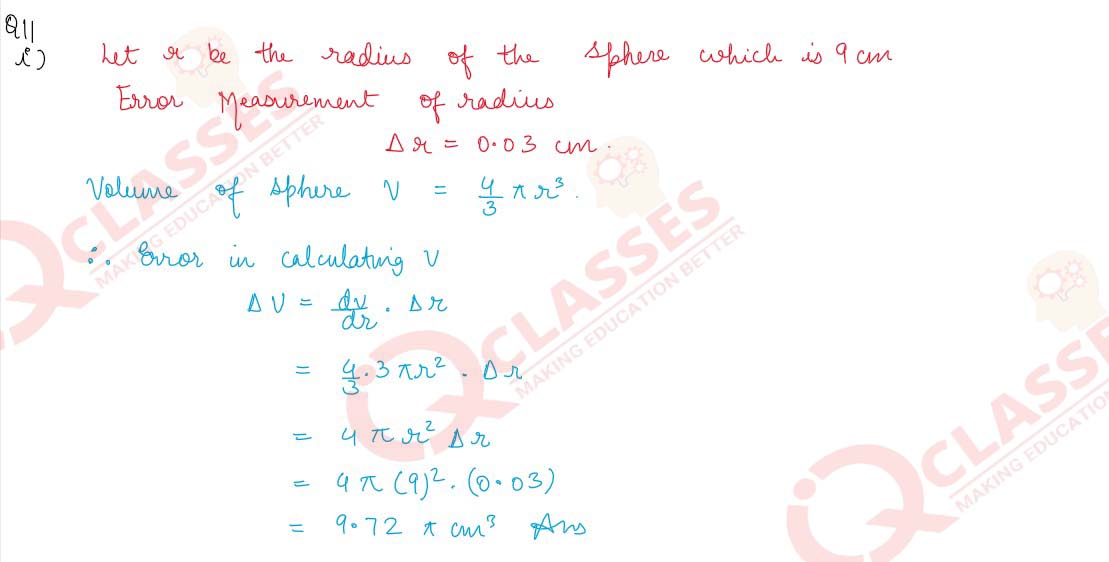 Q11
i) Let r be the radius of the sphere which is 9 cm
Error Measurement of radius
Δr = 0.03 cm.
Volume of sphere V = 4/3 πr³.
∴ Error in calculating V
ΔV = dv/dr . Δr
= 4/3 . 3πr² . Δr
= 4πr² Δr
= 4π (9)² . (0.03)
= 9.72 π cm³ Ans
iQ CLASSES
MAKING EDUCATION BETTER
iQ CLASSES
MAKING EDUCATION BETTER
iQ CLASSES
MAKING EDUCATION